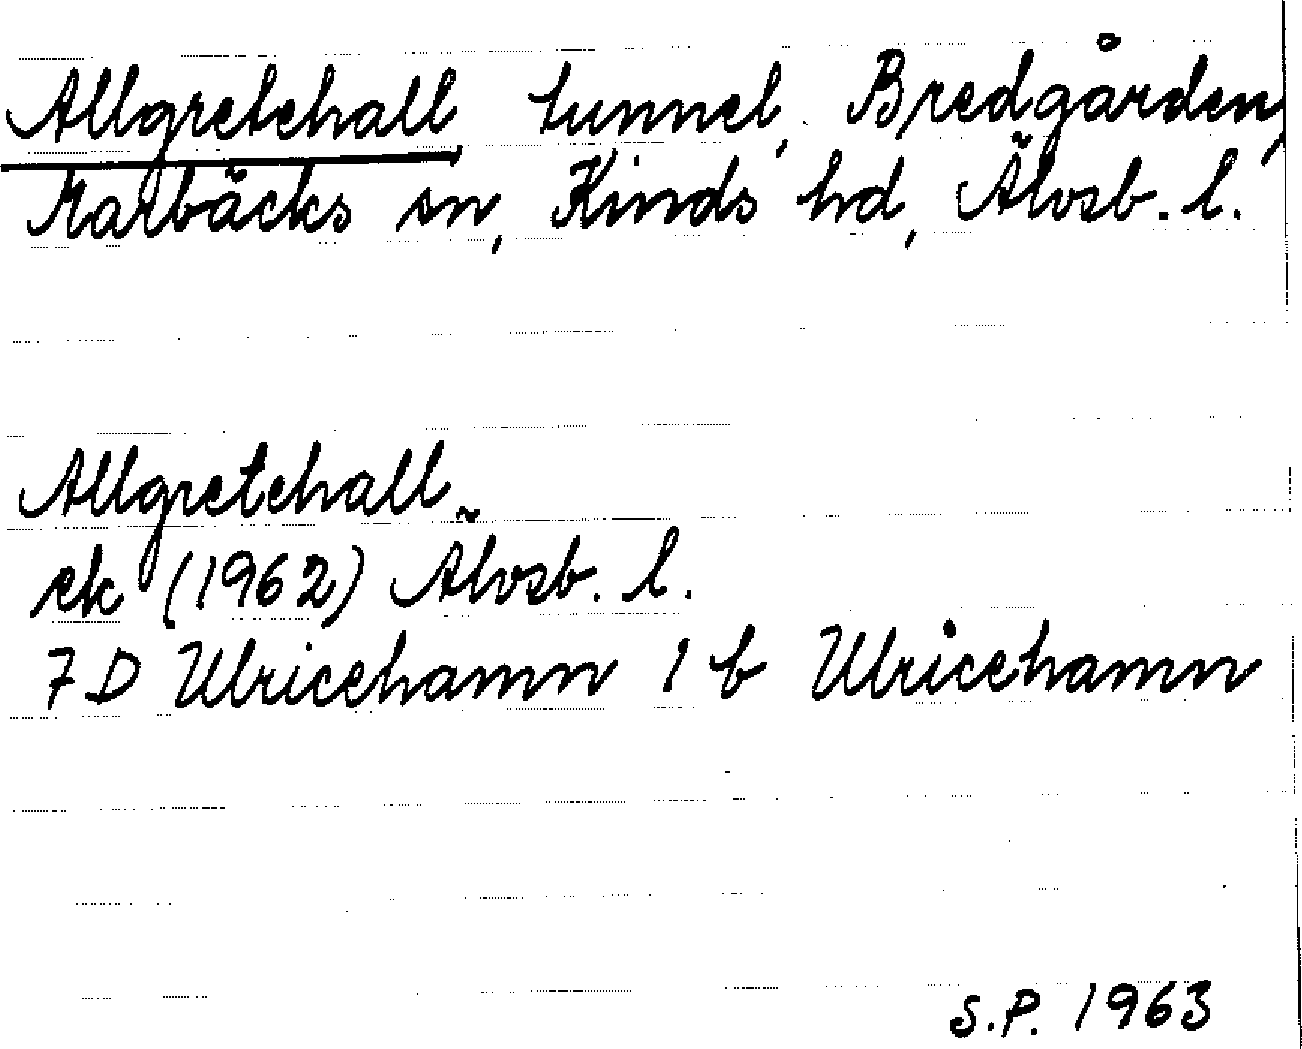 Allgretehall tunnel, Bredgården,
Marbäcks sn, Kinds hd, Älvsb. l.
Allgretehall
ek (1962) Älvsb. l.
7 D Ulricehamn 1 b Ulricehamn
S.P. 1963